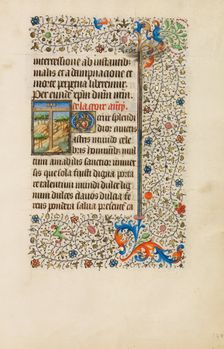 intercessione ab instantib
malis et a dampnacione et
morte perpetua liberemur.
Per eundē xpm dnm nrm.
De la croix
O crux splendi
dior cunctis
astris mundo cele
bris hominibus mul
tum amabilis sanctior univer
sis que sola fuisti digna porta
re talentum mundi dulce lig
num dulces clavos dulcia fe
rens pondera salva presentē ca